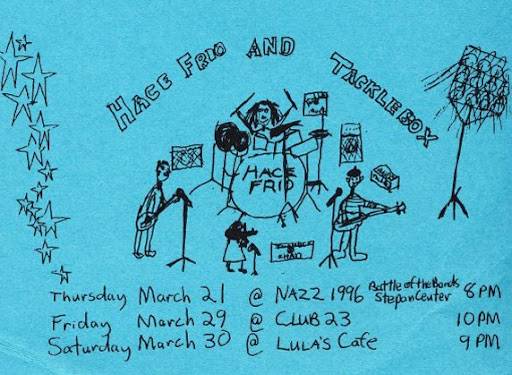 HACE FRIO AND TACKLEBOX
HACE
FRIO
Thursday March 21 @ NAZZ 1996 Battle of the Bands Stepan Center 8 PM
Friday March 29 @ CLUB 23 10 PM
Saturday March 30 @ LULA'S Cafe 9 PM